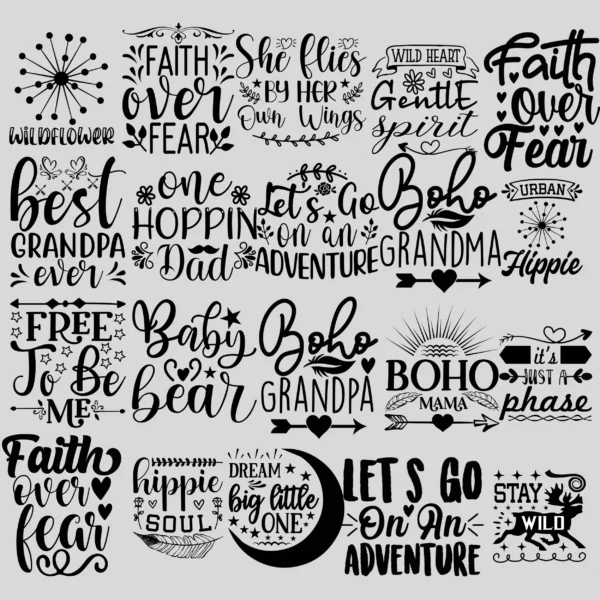 WILDFLOWER
FAITH
over
FEAR
She flies
BY HER
Own Wings
WILD HEART
Gentle
spirit
Faith
over
Fear
best
GRANDPA
ever
one
HOPPIN
Dad
Let's Go
on an
ADVENTURE
Boho
GRANDMA
URBAN
Hippie
FREE
To Be
ME
Baby
bear
Boho
GRANDPA
BOHO
MAMA
it's
JUST A
phase
Faith
over
fear
hippie
SOUL
DREAM
big little
ONE
LET'S GO
On An
ADVENTURE
STAY
WILD